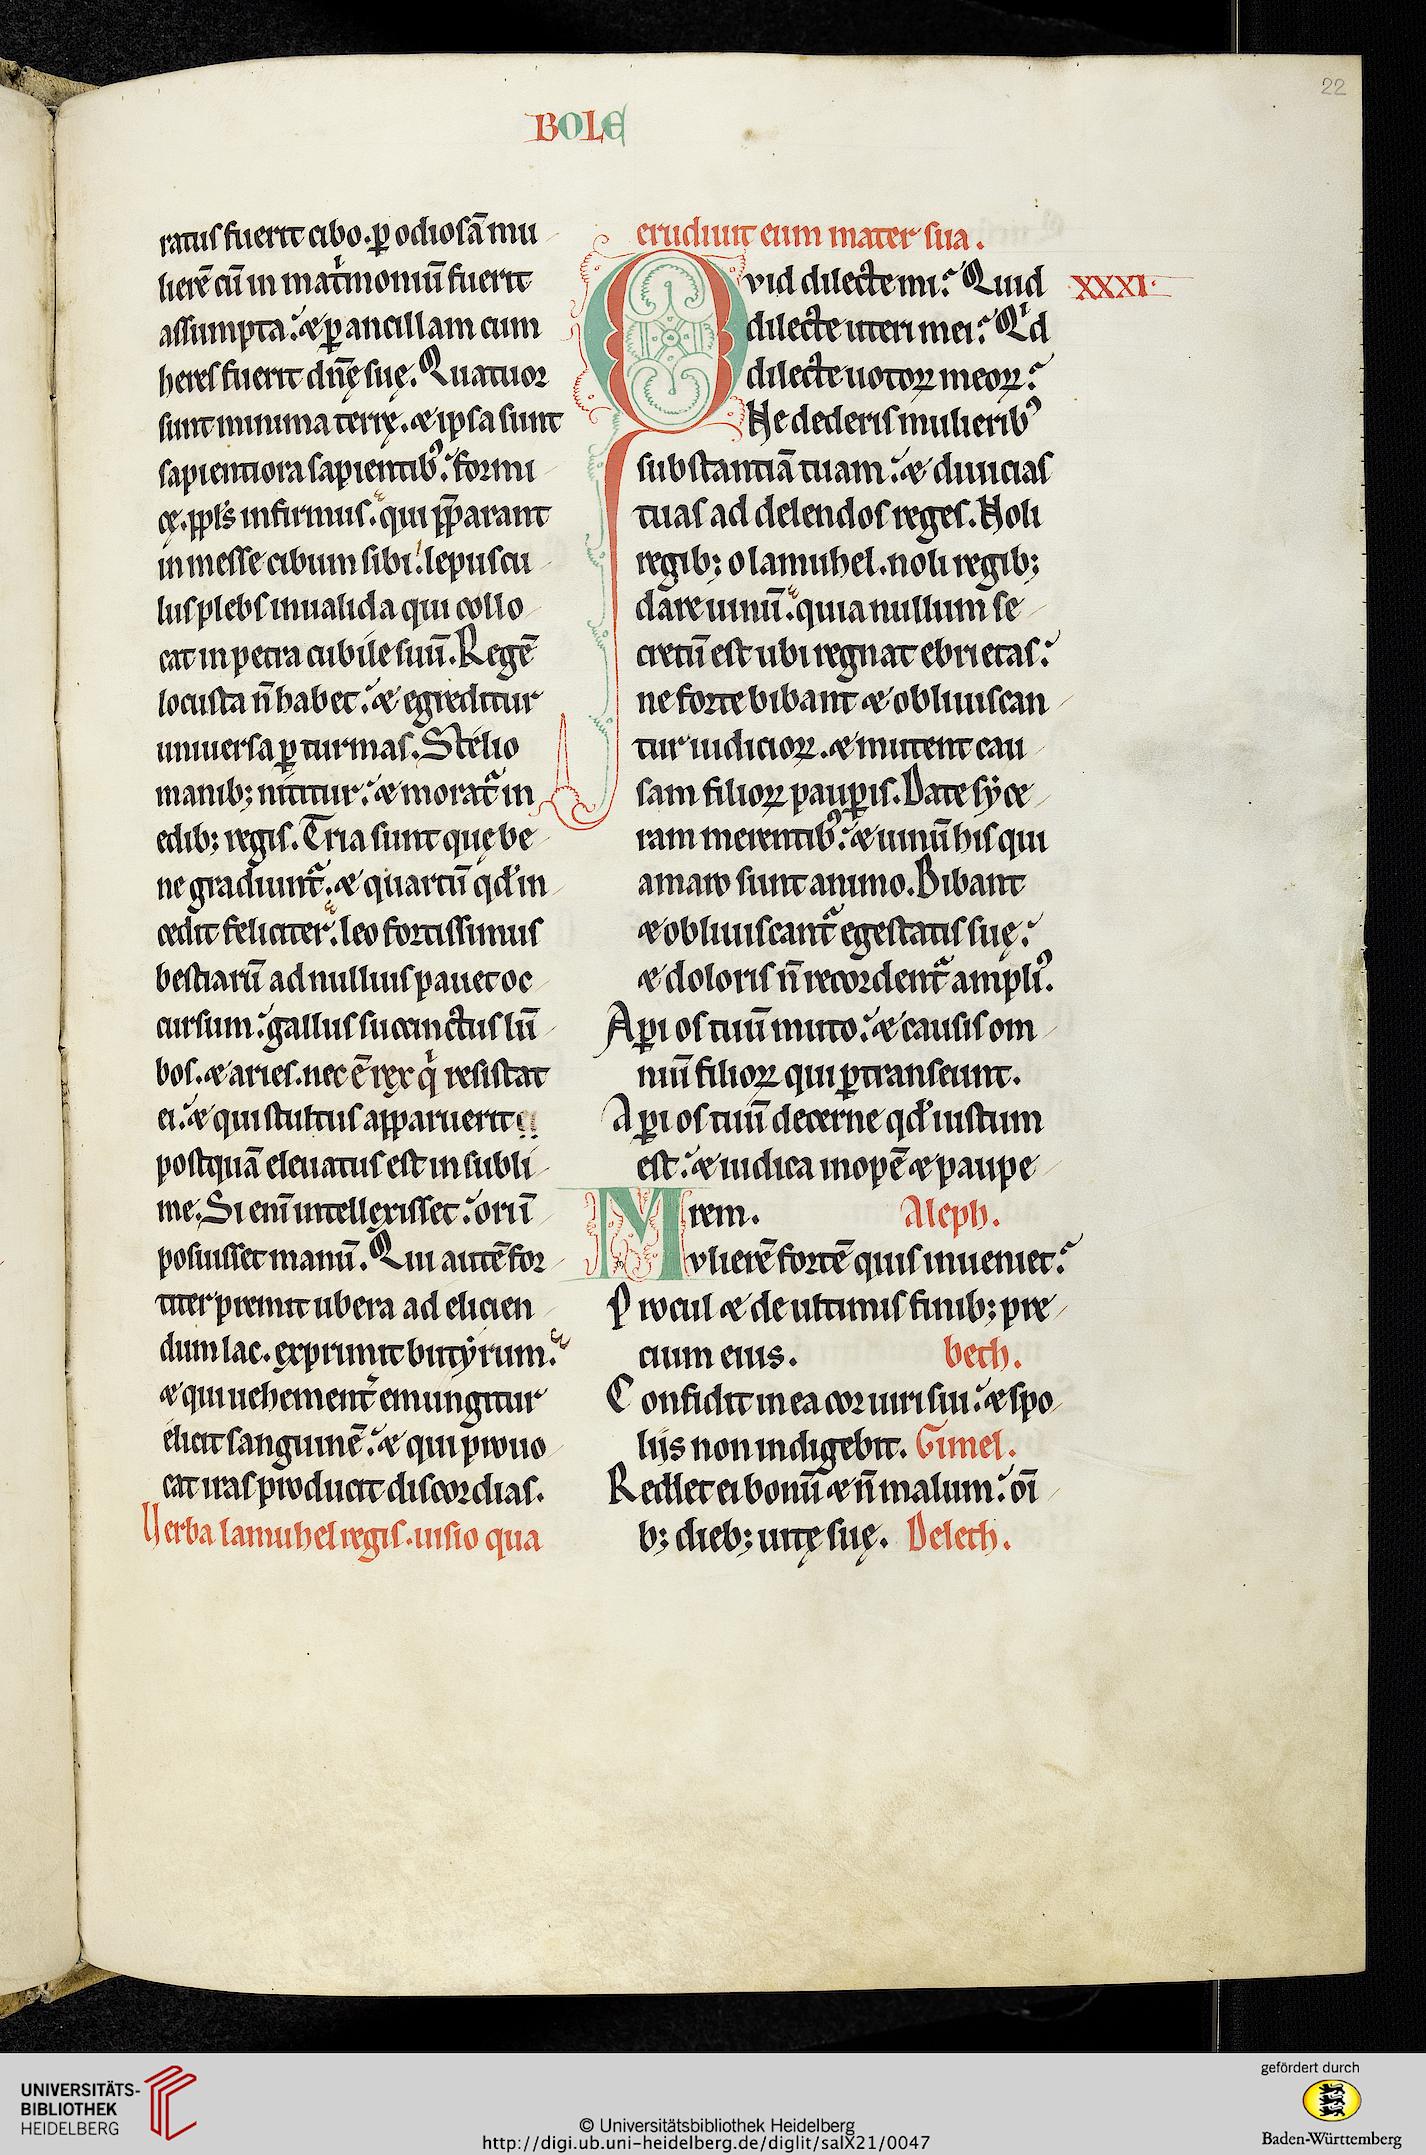 22
BOLE
ratus fuerit cibo. ꝑ odiosā mu
lierē cū in mat͛moniū fuerit
assumpta. & ꝑ ancillam cum
heres fuerit dn̄ę suę. Quatuor
sunt minima terrę. & ipsa sunt
sapientiora sapientibꝰ. formi
cę. ppl̓s infirmus. qui p̄parant
in messe cibum sibi. lepuscu
lus plebs inualida qui collo
cat in petra cubile suū. Regē
locusta n̄ habet. & egreditur
uniuersa ꝑ turmas. Stelio
manib; nititur. & morat᷑ in
edib; regis. Tria sunt quę be
ne gradiunt᷑. & quartū qd̓ in
cedit feliciter. leo fortissimus
bestiarū ad nullius pauet oc
cursum. gallus succinctus lū
bos. & aries. nec ē rex qͥ resistat
ei. & qui stultus apparuerit
postquā eleuatus est in subli
me. Si enī intellexisset. ori ī
posuisset manū. Qui autē for
titer premit ubera ad elicien
dum lac. exprimit butẏrum.
& qui uehement͛ emungitur
elicit sanguinē. & qui prouo
cat iras producit discordias.
Verba lamuhel regis. uisio qua
erudiuit eum mater sua.
Qvid dilecte mi? Quid XXXI.
dilecte uteri mei? Qͥd
dilecte uotoꝝ meoꝝ?
Ne dederis mulieribꝰ
substantiā tuam. & diuicias
tuas ad delendos reges. Noli
regib; o lamuhel. noli regib;
dare uinū. quia nullum se
cretū est ubi regnat ebrietas.
ne forte bibant & obliuiscan
tur iudicioꝝ. & mutent cau
sam filioꝝ pauꝑis. Date sẏce
ram merentibꝰ. & uinū his qui
amaro sunt animo. Bibant
& obliuiscant᷑ egestatis suę.
& doloris n̄ recordent᷑ ampliꝰ.
Aꝑi os tuū muto. & causis om
niū filioꝝ qui ꝑtranseunt.
Aꝑi os tuū decerne qd̓ iustum
est. & iudica inopē & paupe
rem. Aleph.
Mvlierē fortē quis inueniet?
Procul & de ultimis finib; pre
cium eius. beth.
Confidit in ea cor uiri sui. & spo
liis non indigebit. Gimel.
Reddet ei bonū & n̄ malum. oī
b; dieb; uitę suę. Deleth.
UNIVERSITÄTS-
BIBLIOTHEK
HEIDELBERG
© Universitätsbibliothek Heidelberg
http://digi.ub.uni-heidelberg.de/diglit/salX21/0047
gefördert durch
Baden-Württemberg